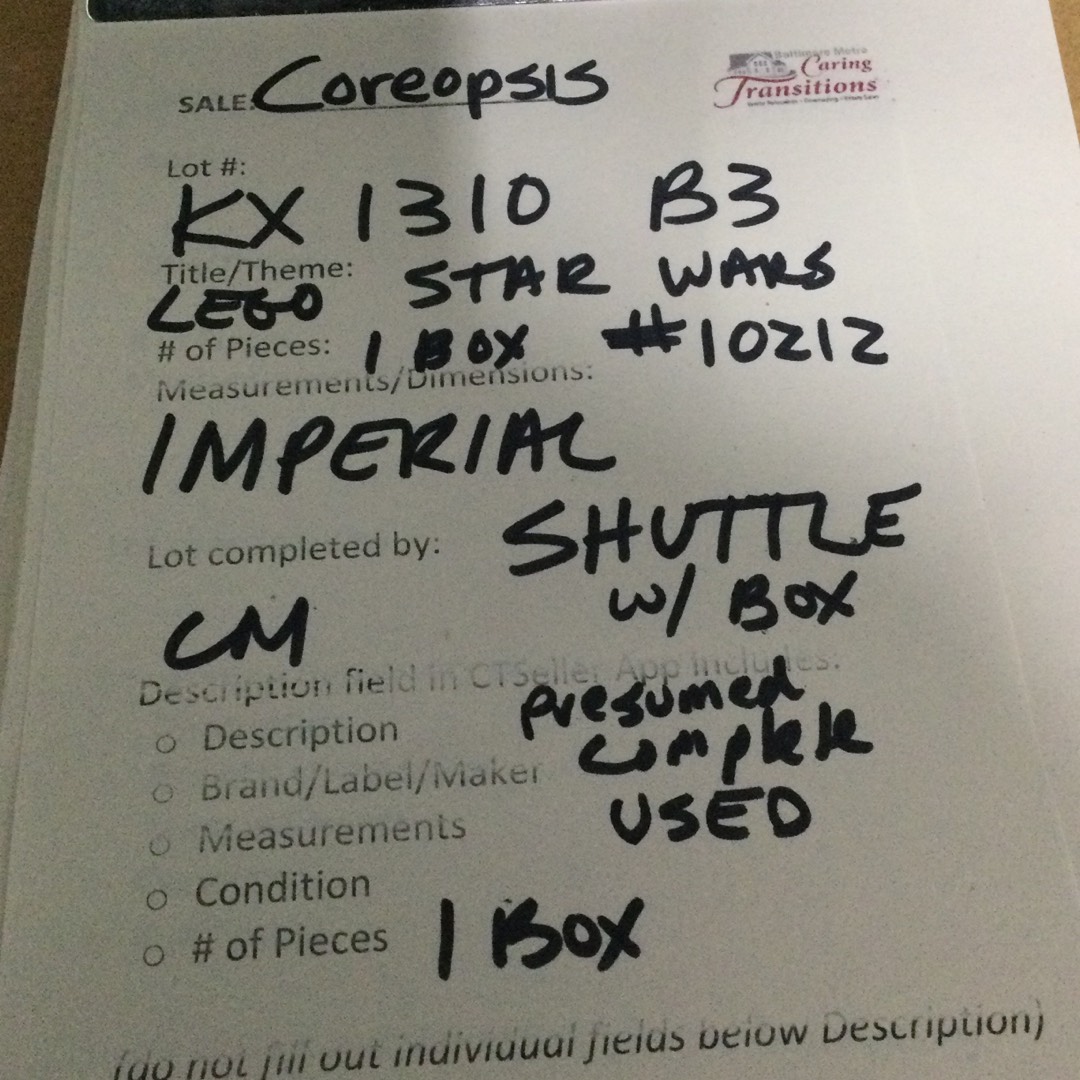 SALE: Coreopsis
Baltimore Metro
Caring
Transitions
Lot #:
KX 1310 B3
Title/Theme: STAR WARS
LEGO
# of Pieces: 1 BOX #10212
Measurements/Dimensions:
IMPERIAL
SHUTTLE
Lot completed by:
W/ BOX
CM
Description field in CTSeller App includes:
presumed
Description
complete
Brand/Label/Maker
USED
Measurements
Condition
# of Pieces 1 BOX
(do not fill out individual fields below Description)